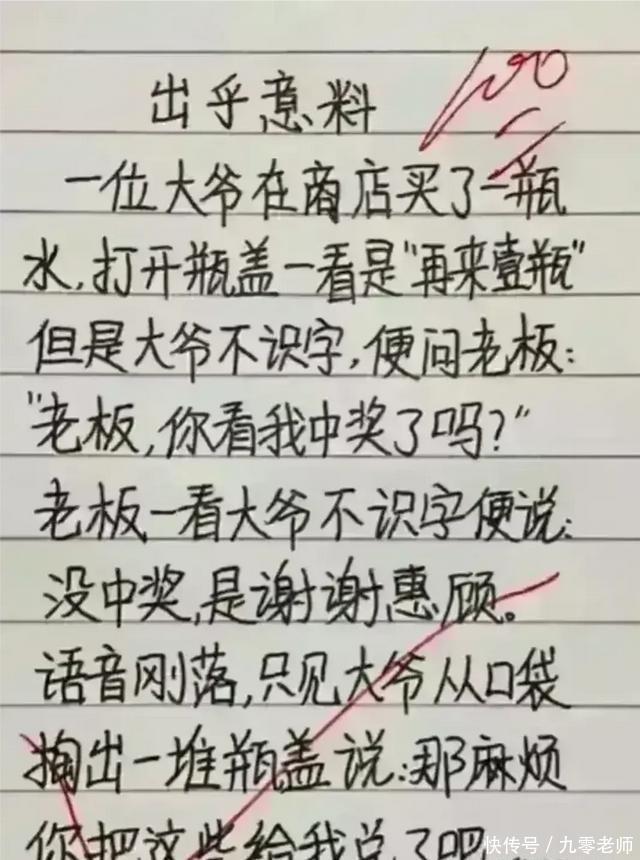 出乎意料
100
一位大爷在商店买了一瓶
水,打开瓶盖一看是"再来壹瓶"
但是大爷不识字,便问老板:
"老板,你看我中奖了吗?"
老板一看大爷不识字便说:
没中奖,是谢谢惠顾。
语音刚落,只见大爷从口袋
掏出一堆瓶盖说:那麻烦
你把这些给我兑了吧
快传号/九零老师